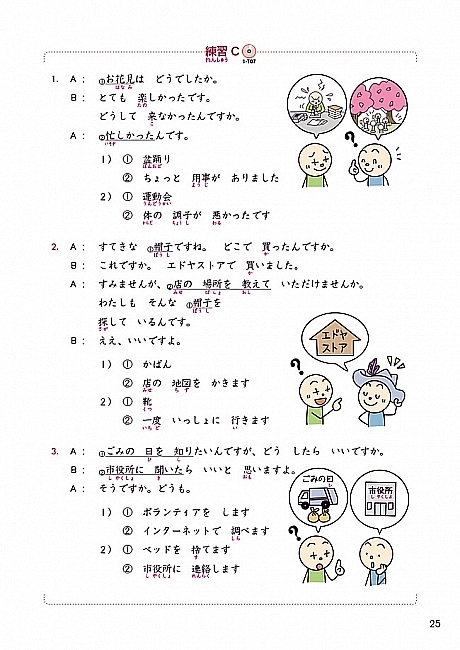 練習 C 1-T07
れんしゅう
1. A: ①お花見は どうでしたか。
はなみ
B: とても 楽しかったです。
たの
どうして 来なかったんですか。
こ
A: ②忙しかったんです。
いそが
1) ① 盆踊り
ぼんおど
② ちょっと 用事が ありました
ようじ
2) ① 運動会
うんどうかい
② 体の 調子が 悪かったです
からだ ちょうし わる
2. A: すてきな ①帽子ですね。 どこで 買ったんですか。
ぼうし か
B: これですか。 エドヤストアで 買いました。
か
A: すみませんが、②店の 場所を 教えて いただけませんか。
みせ ばしょ おし
わたしも そんな ①帽子を
ぼうし
探して いるんです。
さが
B: ええ、いいですよ。
1) ① かばん
② 店の 地図を かきます
みせ ちず
2) ① 靴
くつ
② 一度 いっしょに 行きます
いちど い
エドヤ
ストア
3. A: ①ごみの 日を 知りたいんですが、どう したら いいですか。
ひ し
B: ②市役所に 聞いたら いいと 思いますよ。
しやくしょ き おも
A: そうですか。どうも。
1) ① ボランティアを します
② インターネットで 調べます
しら
2) ① ベッドを 捨てます
す
② 市役所に 連絡します
しやくしょ れんらく
ごみの日
ひ
市役所
しやくしょ
25